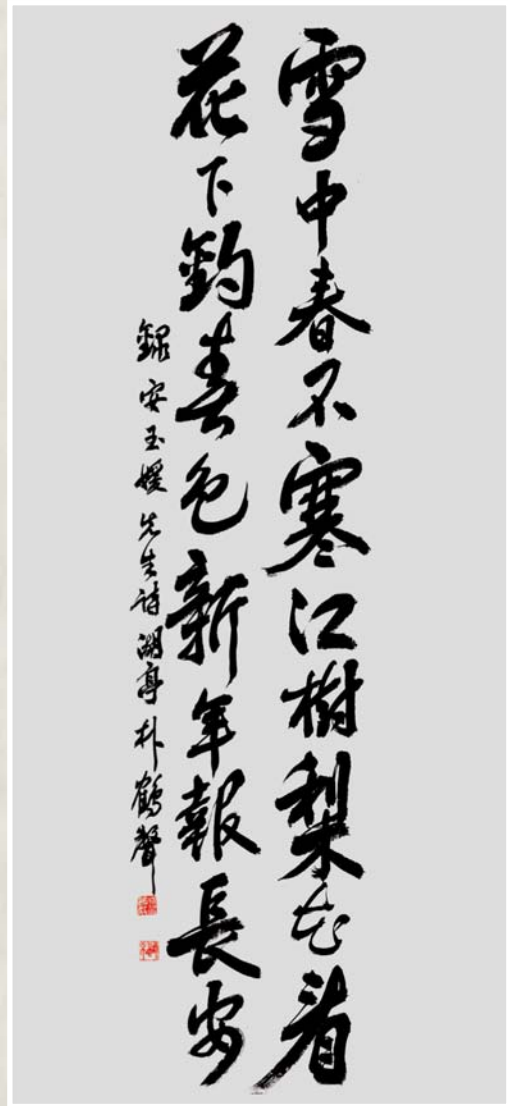 雪中春不寒江樹梨花看
花下釣春色新年報長安
錄安玉媛先生詩湖亭朴鶴聲